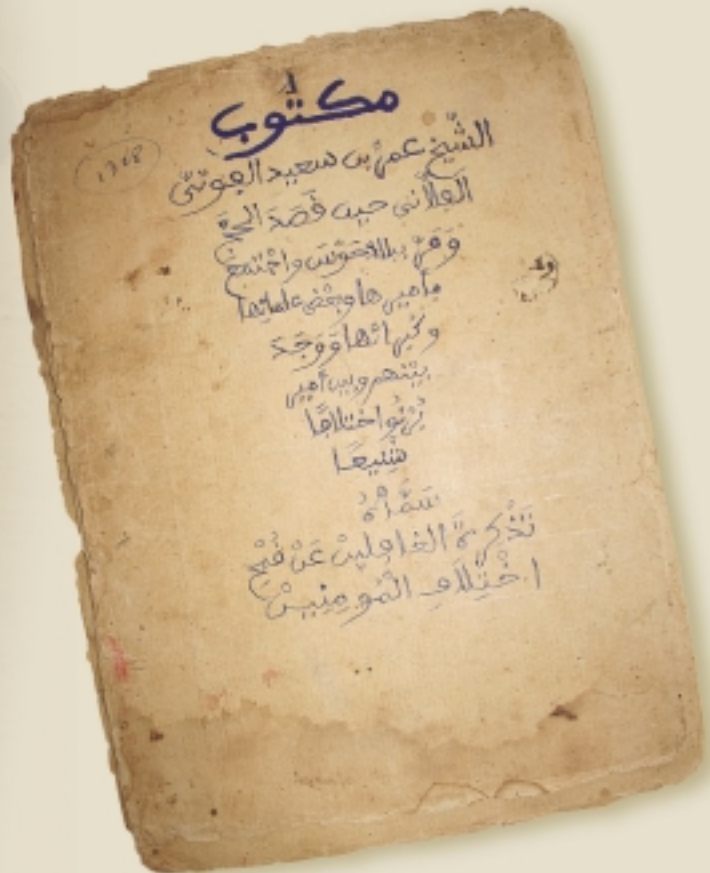 مكتوب
الشّيخ عمر بن سعيد الفوتيّ
الفلّاني حين قَصَدَ الحج
وَمَرَّ ببلاد هَوْسَ واجْتمع
بأميرها وبعض علمائها
وكبرائها وَوَجَدَ
بينهم وبين أمير
بُرْنُو اختلافًا
شَنِيعًا
سَمَّاهُ
تَذْكِرَةَ الغافلين عَنْ قُبْحِ
اخْتِلَافِ الْمُومِنِين